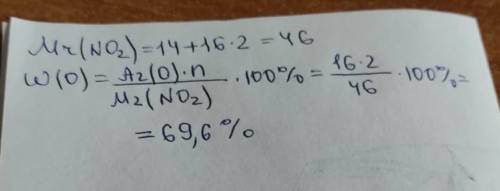 Mr(NO₂)=14+16·2=46
W(O)=Ar(O)·n/Mr(NO₂)·100%=16·2/46·100%=
=69,6%